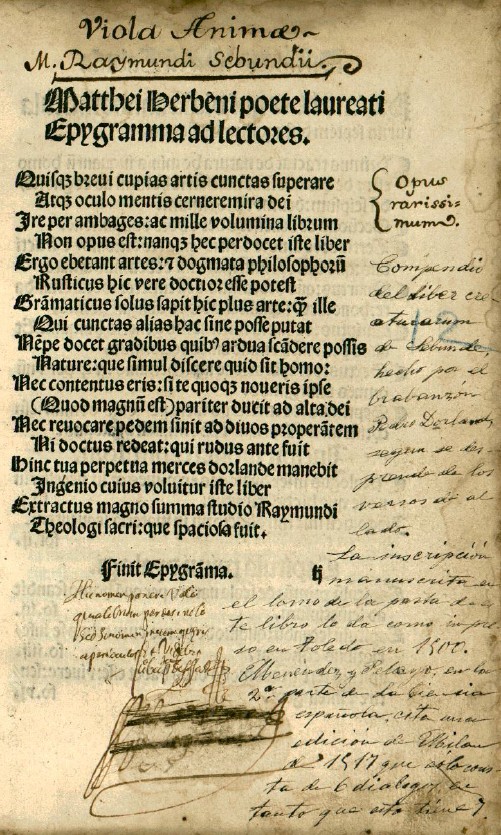 Viola Animæ
M. Raymundi Sebundii.
Matthei Herbeni poete laureati
Epygramma ad lectores.
Quisqʒ breui cupias artis cunctas superare
Atqʒ oculo mentis cernere mira dei
Ire per ambages: ac mille volumina librum
Non opus est: nanqʒ hec perdocet iste liber
Ergo ebetant artes: ⁊ dogmata philosophorū
Rusticus hic vere doctior esse potest
Grāmaticus solus sapit hic plus arte: q̄ȝ ille
Qui cunctas alias hac sine posse putat
Nēpe docet gradibus quibꝰ ardua scādere possis
Nature: que simul discere quid sit homo:
Nec contentus eris: si te quoqʒ noueris ipse
(Quod magnū est) pariter ducit ad alta dei
Nec reuocare pedem sinit ad diuos properātem
Ni doctus redeat: qui rudus ante fuit
Hinc tua perpetua merces dorlande manebit
Ingenio cuius voluitur iste liber
Extractus magno summa studio Raymundi
Theologi sacri: que spaciosa fuit.
Finit Epygrāma.
Opus
rarissi-
mum.
Compendio
del liber cre
aturarum
de Sebunde,
hecho por el
brabanzón
Pedro Dorland,
segun se des-
prende de los
versos de al
lado.
La inscripción
manuscrita en
el lomo de la pasta de es
te libro lo da como impre
so en Toledo en 1500.
Menéndez y Pelayo, en la
2ª parte de La Ciencia
española, cita una
edición de Milan
de 1517 que solo cons
ta de 6 dialogos, en
tanto que esta tiene 7